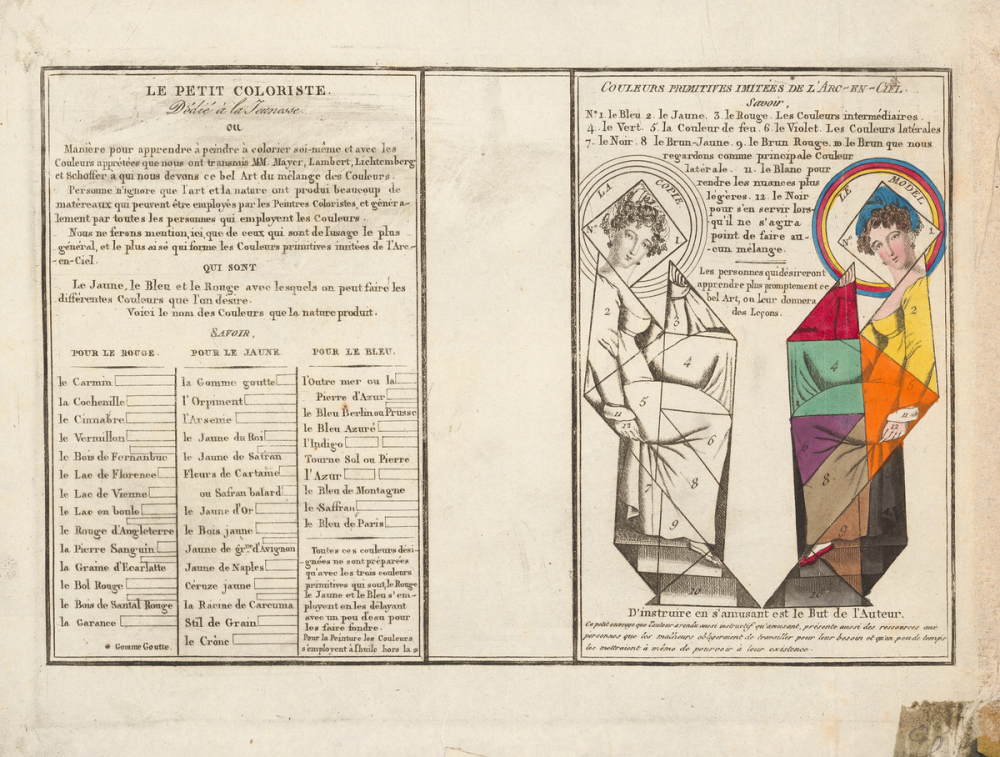 LE PETIT COLORISTE.
Dédié à la Jeunesse.
OU
Manière pour apprendre à peindre à colorier soi-même et avec les
Couleurs apprêtées que nous ont transmis MM. Mayer, Lambert, Lichtemberg
et Schoffer à qui nous devons ce bel Art du mélange des Couleurs.
Personne n'ignore que l'art et la nature ont produi beaucoup de
matéreaux qui peuvent être employés par les Peintres Coloristes, et généra-
lement par toutes les personnes qui employent les Couleurs.
Nous ne ferons mention, ici, que de ceux qui sont de l'usage le plus
général, et le plus aisé qui forme les Couleurs primitives imitées de l'Arc-
-en-Ciel.
QUI SONT
Le Jaune, le Bleu et le Rouge avec lesquels on peut faire les
différentes Couleurs que l'on désire.
Voici le nom des Couleurs que la nature produit.
SAVOIR,
POUR LE ROUGE.
le Carmin
la Cochenille
le Cinnabre
le Vermillon
le Bois de Fernanbuc
le Lac de Florence
le Lac de Vienne
le Lac en boule
le Rouge d'Angleterre
la Pierre Sanguin
la Graine d'Ecarlatte
le Bol Rouge
le Bois de Santal Rouge
la Garance
* Gomme Goutte.
POUR LE JAUNE.
la Gomme goutte
l'Orpiment
l'Arsenic
le Jaune du Roi
le Jaune de Safran
Fleurs de Cartame
ou Safran batard
le Jaune d'Or
le Bois jaune
Jaune de gr.ne d'Avignon
Jaune de Naples
Céruze jaune
la Racine de Carcuma
Stil de Grain
le Crône
POUR LE BLEU.
l'Outre mer ou la
Pierre d'Azur
le Bleu Berlin ou Prusse
le Bleu Azuré
l'Indigo
Tourne Sol ou Pierre
l'Azur
le Bleu de Montagne
le Saffran
le Bleu de Paris
Toutes ces couleurs dési-
gnées ne sont préparées
qu'avec les trois couleurs
primitives qui sont, le Rouge
le Jaune et le Bleu s'em-
ployent en les délayant
avec un peu d'eau pour
les faire fondre.
Pour la Peinture les Couleurs
s'employent à l'huile hors la *
COULEURS PRIMITIVES IMITÉES DE L'ARC-EN-CIEL.
Savoir,
N° 1 le Bleu 2. le Jaune. 3. le Rouge. Les Couleurs intermédiaires.
4. le Vert. 5. la Couleur de feu. 6. le Violet. Les Couleurs latérales
7. le Noir. 8 le Brun-Jaune. 9. le Brun Rouge. 10 le Brun que nous
regardons comme principale Couleur
latérale. 11. le Blanc pour
rendre les nuances plus
légères. 12. le Noir
pour s'en servir lors-
qu'il ne s'agira
point de faire au-
cun mélange.
Les personnes qui désireront
apprendre plus promptement ce
bel Art, on leur donnera
des Leçons.
LA COPIE
N° 1.
2
3
4
5
6
7
8
9
10
11
12
LE MODEL
N° 1.
2
4
5
6
8
9
10
11
12
D'instruire en s'amusant est le But de l'Auteur.
Ce petit ouvrage que l'auteur a rendu aussi instructif qu'amusant, présente aussi des ressources aux
personnes que les malheurs obligeraient de travailler pour leur besoin et qu'en peu de temps
les mettraient à même de pourvoir à leur existence.